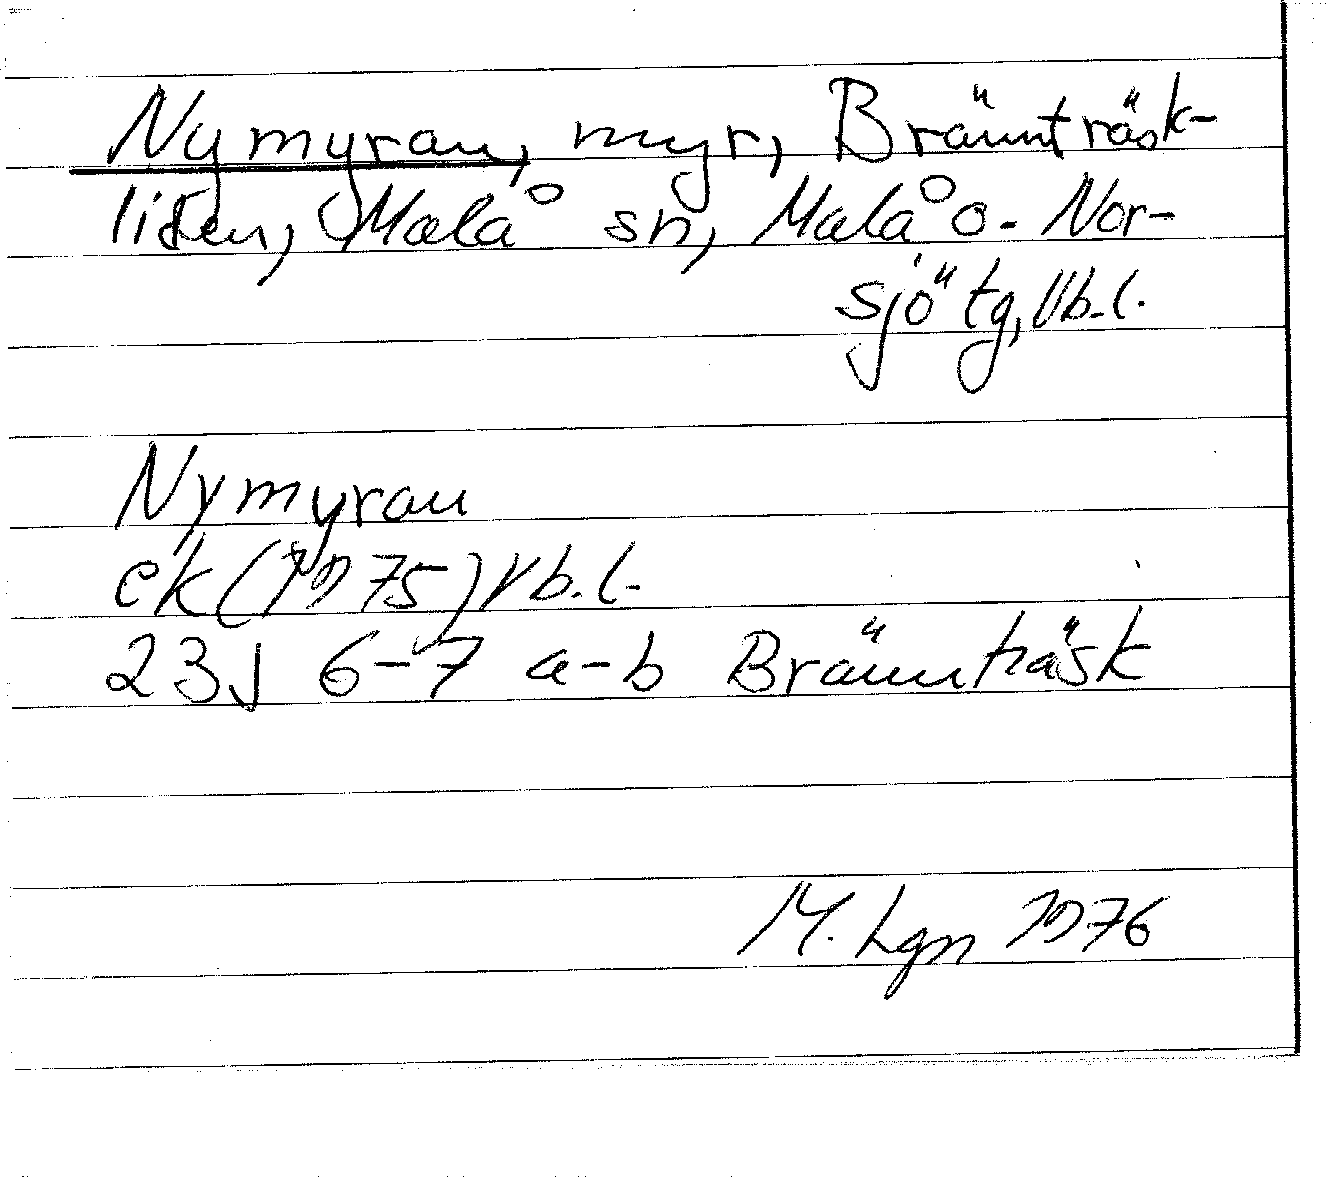 Nymyran, myr, Bränntäsk-
liden, Malå sn, Malå o. Nor-
sjö tg, Vb.l.
Nymyran
ek (1975) Vb.l.
23J 6-7 a-b Bränntäsk
M. Lgn 1976